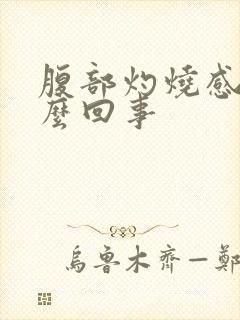 腹部灼燒感
麼回事
烏魯木齊一鄭